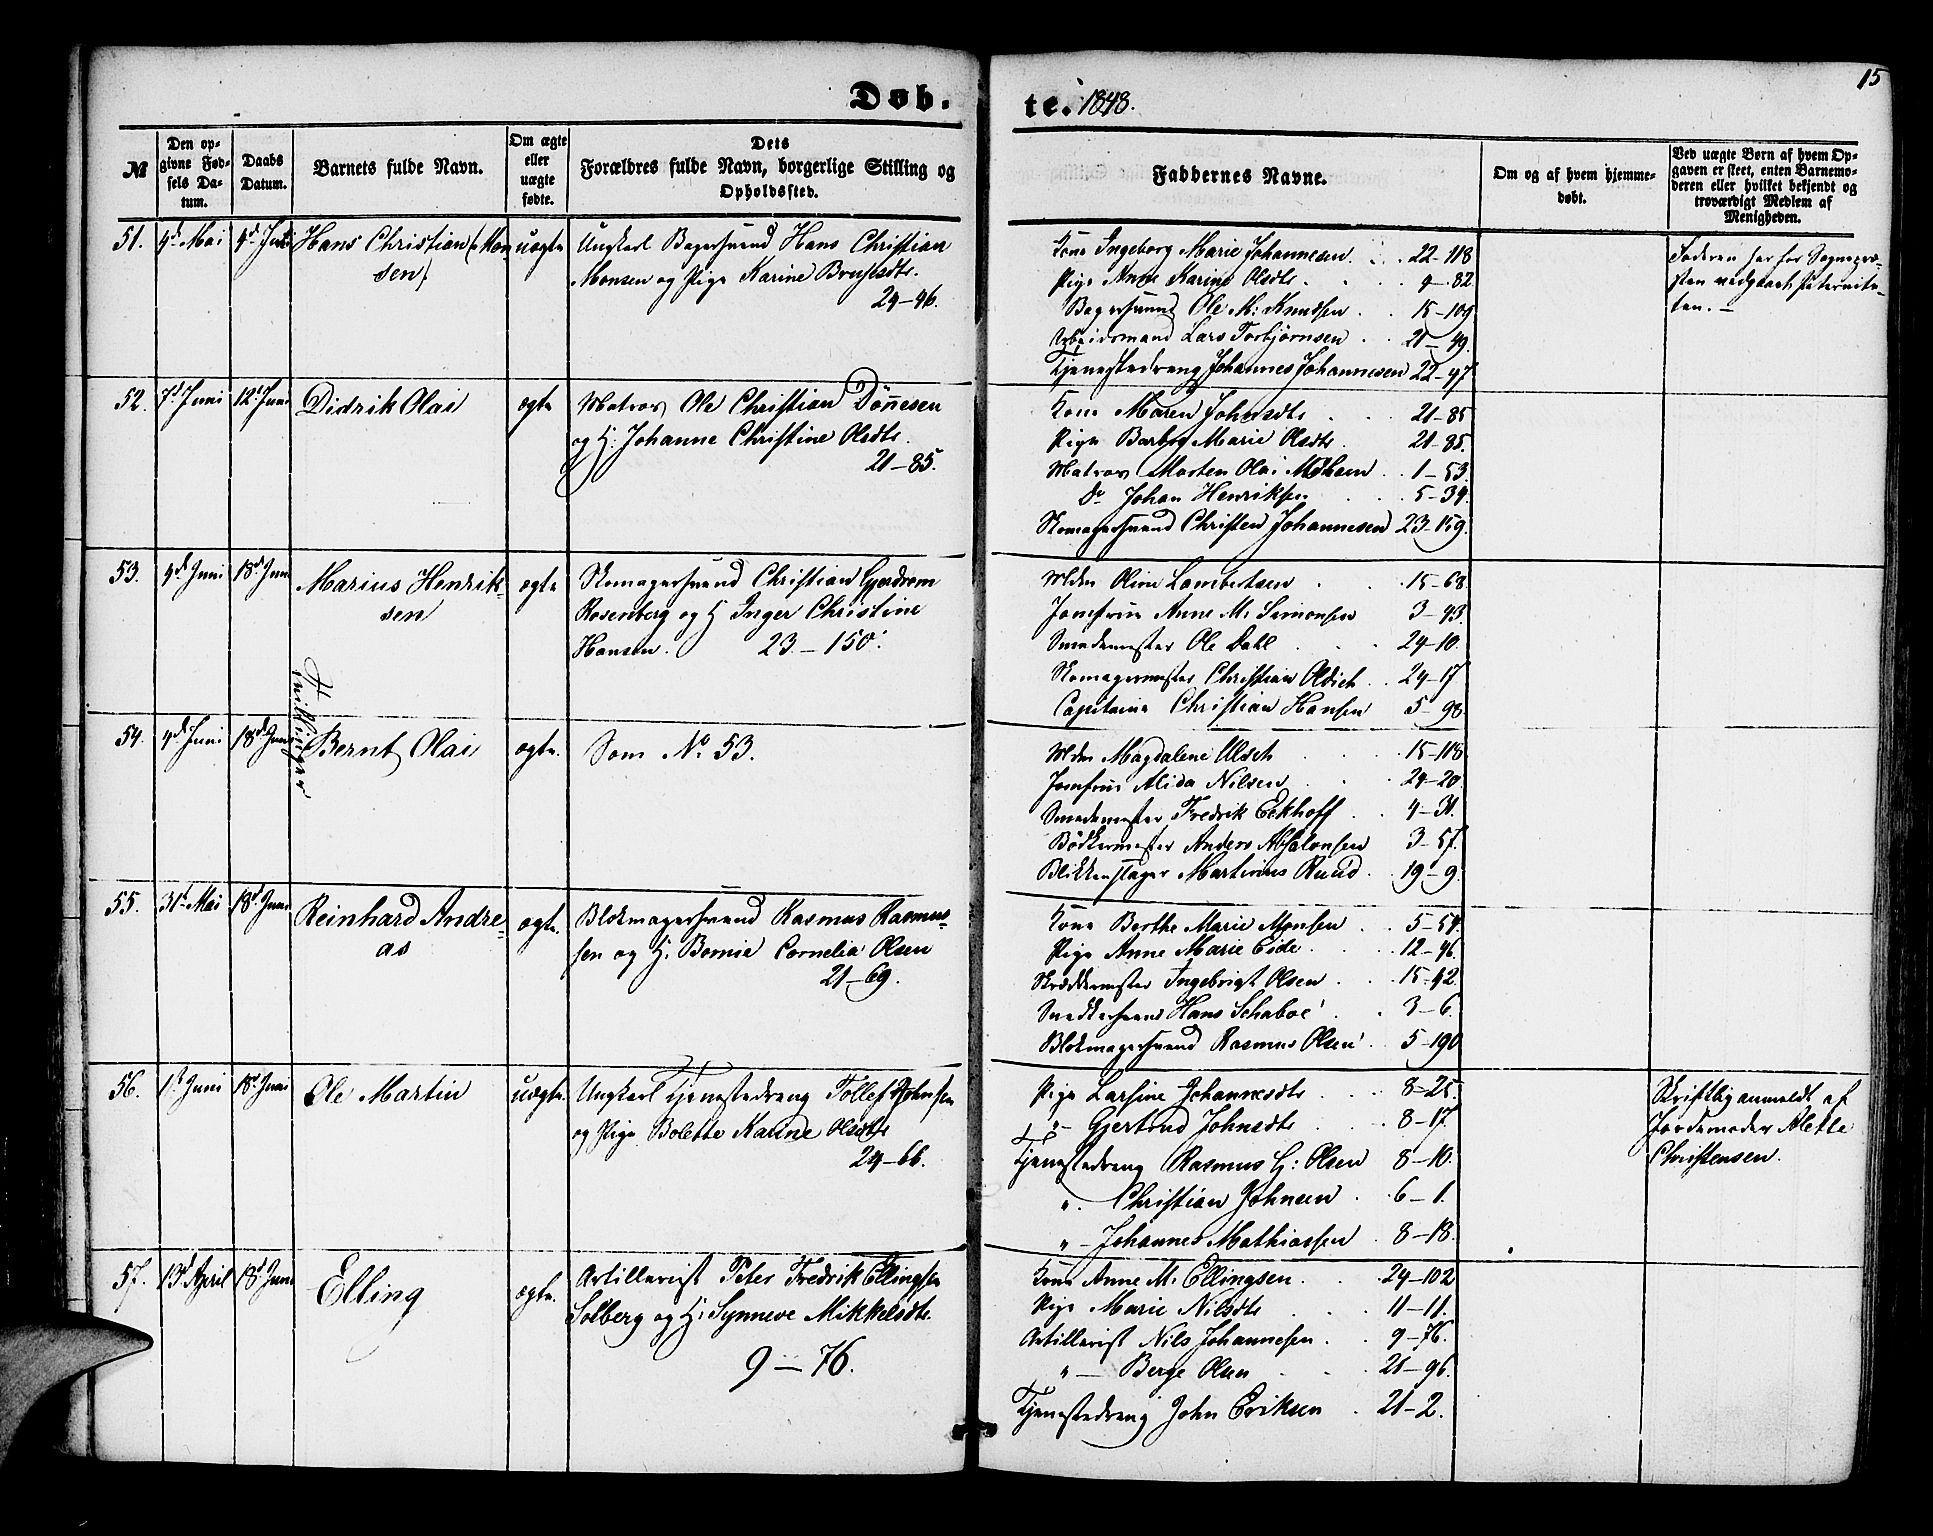 15
Døb. te. 1848.
№
Den op-
givne Fød-
sels Da-
tum.
Daabs
Datum.
Barnets fulde Navn.
Om ægte
eller
uægte
fødte.
Dets
Forældres fulde Navn, borgerlige Stilling og
Opholdssted.
Faddernes Navne.
Om og af hvem hjemme-
døbt.
Ved uægte Børn af hvem Op-
gaven er skeet, enten Barnemo-
deren eller hvilket bekjendt og
troværdigt Medlem af
Menigheden.
51. 4d Mai 4d Juni Hans Christian (Mon
sen) uægte Ungkarl Bagersvend Hans Christian
Monsen og Pige Karine
24-46.
Kone Ingeborg Marie Johannesen 22-118
Pige Anne Karine Olsdtr 9-82
Bagersvend Ole M: Knudsen 15-109
Arbeidsmand Lars Torbjørnsen 21-49.
Tjenestedreng Johannes Johannesen 22-47
Faderen har for Sognepræ-
sten vedgaaet paternite-
ten. -
52. 7d Juni 12d Juni Didrik Olai ægte Matros Ole Christian Dønesen
og H: Johanne Christine Olsdtr.
21-85.
Kone Maren Johnsdtr 21-85
Pige Barbro Marie Olsdtr. 21-85.
Matros Morten Olai 1-53.
Do Johan Henriksen 5-39.
Skomagersvend Christen Johannesen 23-159.
53. 4d Juni 18d Juni Marius Henrik-
sen ægte Skomagersvend Christian Gjerdrum
Rosenberg og H Inger Christine
Hansen. 23-150.
Mdm Oline Lambertsen 15-68
Jomfrue Anne M. Simonsen 3-43.
Smedemester Ole Dahl 24-10.
Skomagermester Christian Oldich 24-17
Capitaine Christian Hansen 5-98
Tvillinger
54. 4d Juni 18d Juni Bernt Olai ægte. Som No. 53.
Mdm Magdalene 15-118
Jomfrue Alida Nilsen 24-20.
Smedemester Fredrik Eckhoff 4-31.
Bødkermester Anders Absalonsen 3-57.
Blikkenslager Martinius Ruud 19-9.
55. 31d Mai 18d Juni Reinhard Andre-
as ægte. Blokmagersvend Rasmus Rasmus-
sen og H. Bomie Cornelia Olsen
21-69.
Kone Berthe Marie Monsen 5-54.
Pige Anne Marie Eide 12-46.
Skræddermester Ingebrigt Olsen 15-42.
Snedkersvend Hans Schaboe 3-6.
Blokmagersvend Rasmus Olsen 5-190
56. 1d Juni 18d Juni Ole Martin uægte. Ungkarl Tjenestedreng Tollef Johnsen
og Pige Bolette Karine Olsdtr
24-66.
Pige Larsine Johannesdtr 8-25.
" - Gjertrud Johnsdtr 8-17.
Tjenestedreng Rasmus G: Olsen 8-10.
" Christian Johnsen 6-1.
" - Johannes Mathiassen 8-18.
Skriftlig anmeldt af
Jordemoder Alette
Christensen.
57. 13d April 18d Juni Elling ægte. Artillerist Peter Fredrik Ellingsen
Solberg og H: Synneve Mikkelsdtr.
9-76.
Kone Anne M. Ellingsen. 24-102
Pige Marie Nilsdtr 11-11.
Artillerist Nils Johannesen 9-76.
" - Berge Olsen 21-96.
Tjenestedreng John Eriksen 21-2.